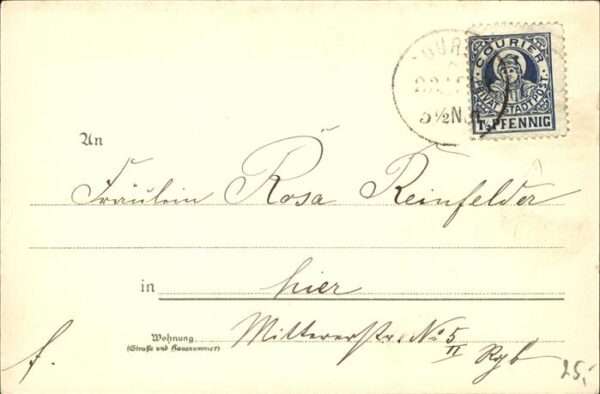 COURIER
PRIVAT-STADTPOST.
1½ PFENNIG
5½N
An
Fräulein Rosa Reinfelder
in hier
Wohnung
(Straße und Hausnummer)
Mittererstr. No 5
II
f.
25,-